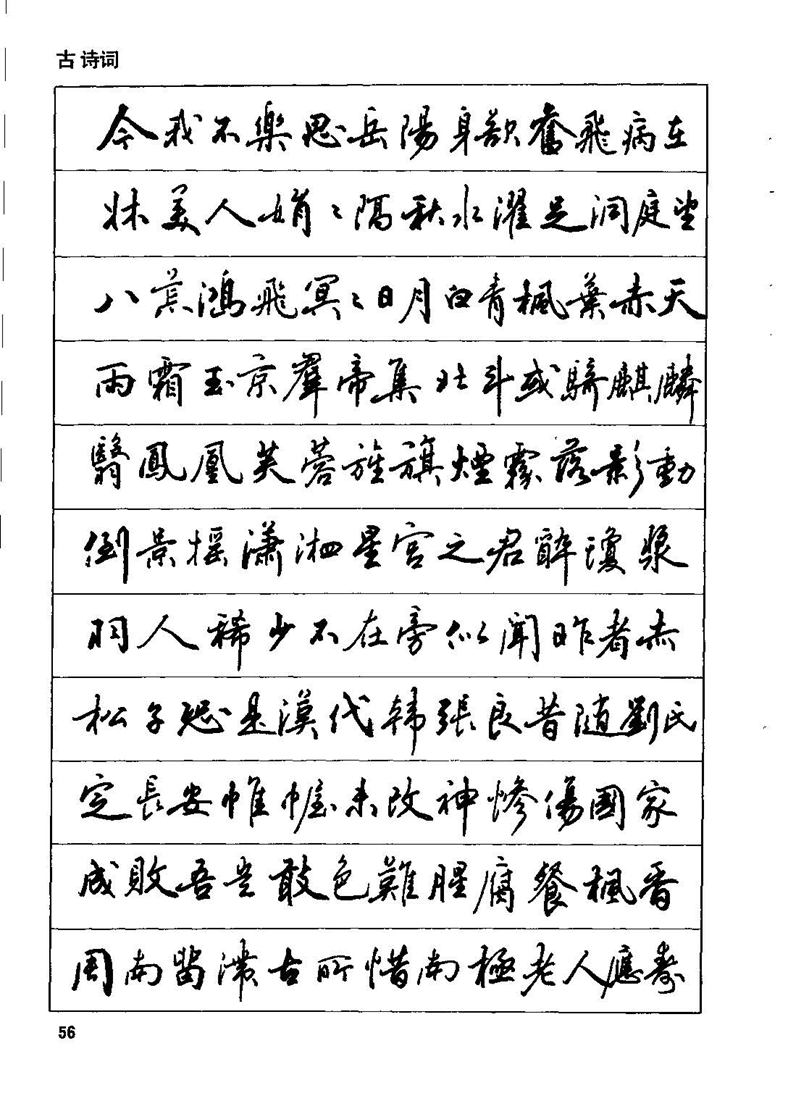 古诗词
今我不樂思岳陽身欲奮飛病在
牀美人娟〻隔秋水濯足洞庭望
八荒鴻飛冥〻日月白青楓葉赤天
雨霜玉京群帝集北斗或騎麒麟
翳鳳凰芙蓉旌旗煙霧落影動
倒景摇潇湘星宫之君醉瓊漿
羽人稀少不在旁似聞昨者赤
松子恐是漢代韓張良昔隨劉氏
定長安帷幄未改神慘傷國家
成敗吾豈敢色難腥腐餐楓香
周南留滯古所惜南極老人應壽
56